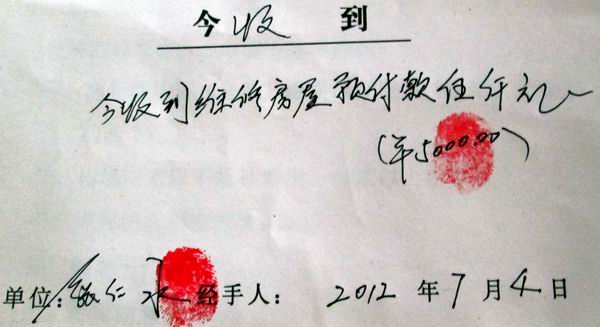 今收到
今收到维修房屋预付款伍仟元
(¥5000.00)
单位: 仁永 经手人: 2012年7月4日